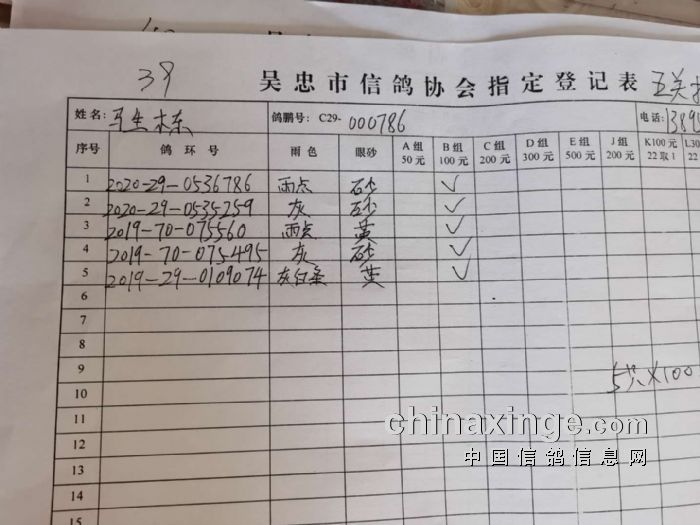 39 吴忠市信鸽协会指定登记表 五关
姓名: 马生栋 鸽鹏号: C29-000786 电话: 1389
序号 鸽环号 雨色 眼砂 A组 50元 B组 100元 C组 200元 D组 300元 E组 500元 J组 200元 K100元 22取1 L30 22
1 2020-29-0536786 雨点 砂 ✓
2 2020-29-0535259 灰 砂 ✓
3 2019-70-075560 雨点 黄 ✓
4 2019-70-075495 灰 砂 ✓
5 2019-29-0109074 灰白条 黄 ✓
6
7
8
9
5只X100
10
11
12
13
14
15
chinaxinge.com
中国信鸽信息网